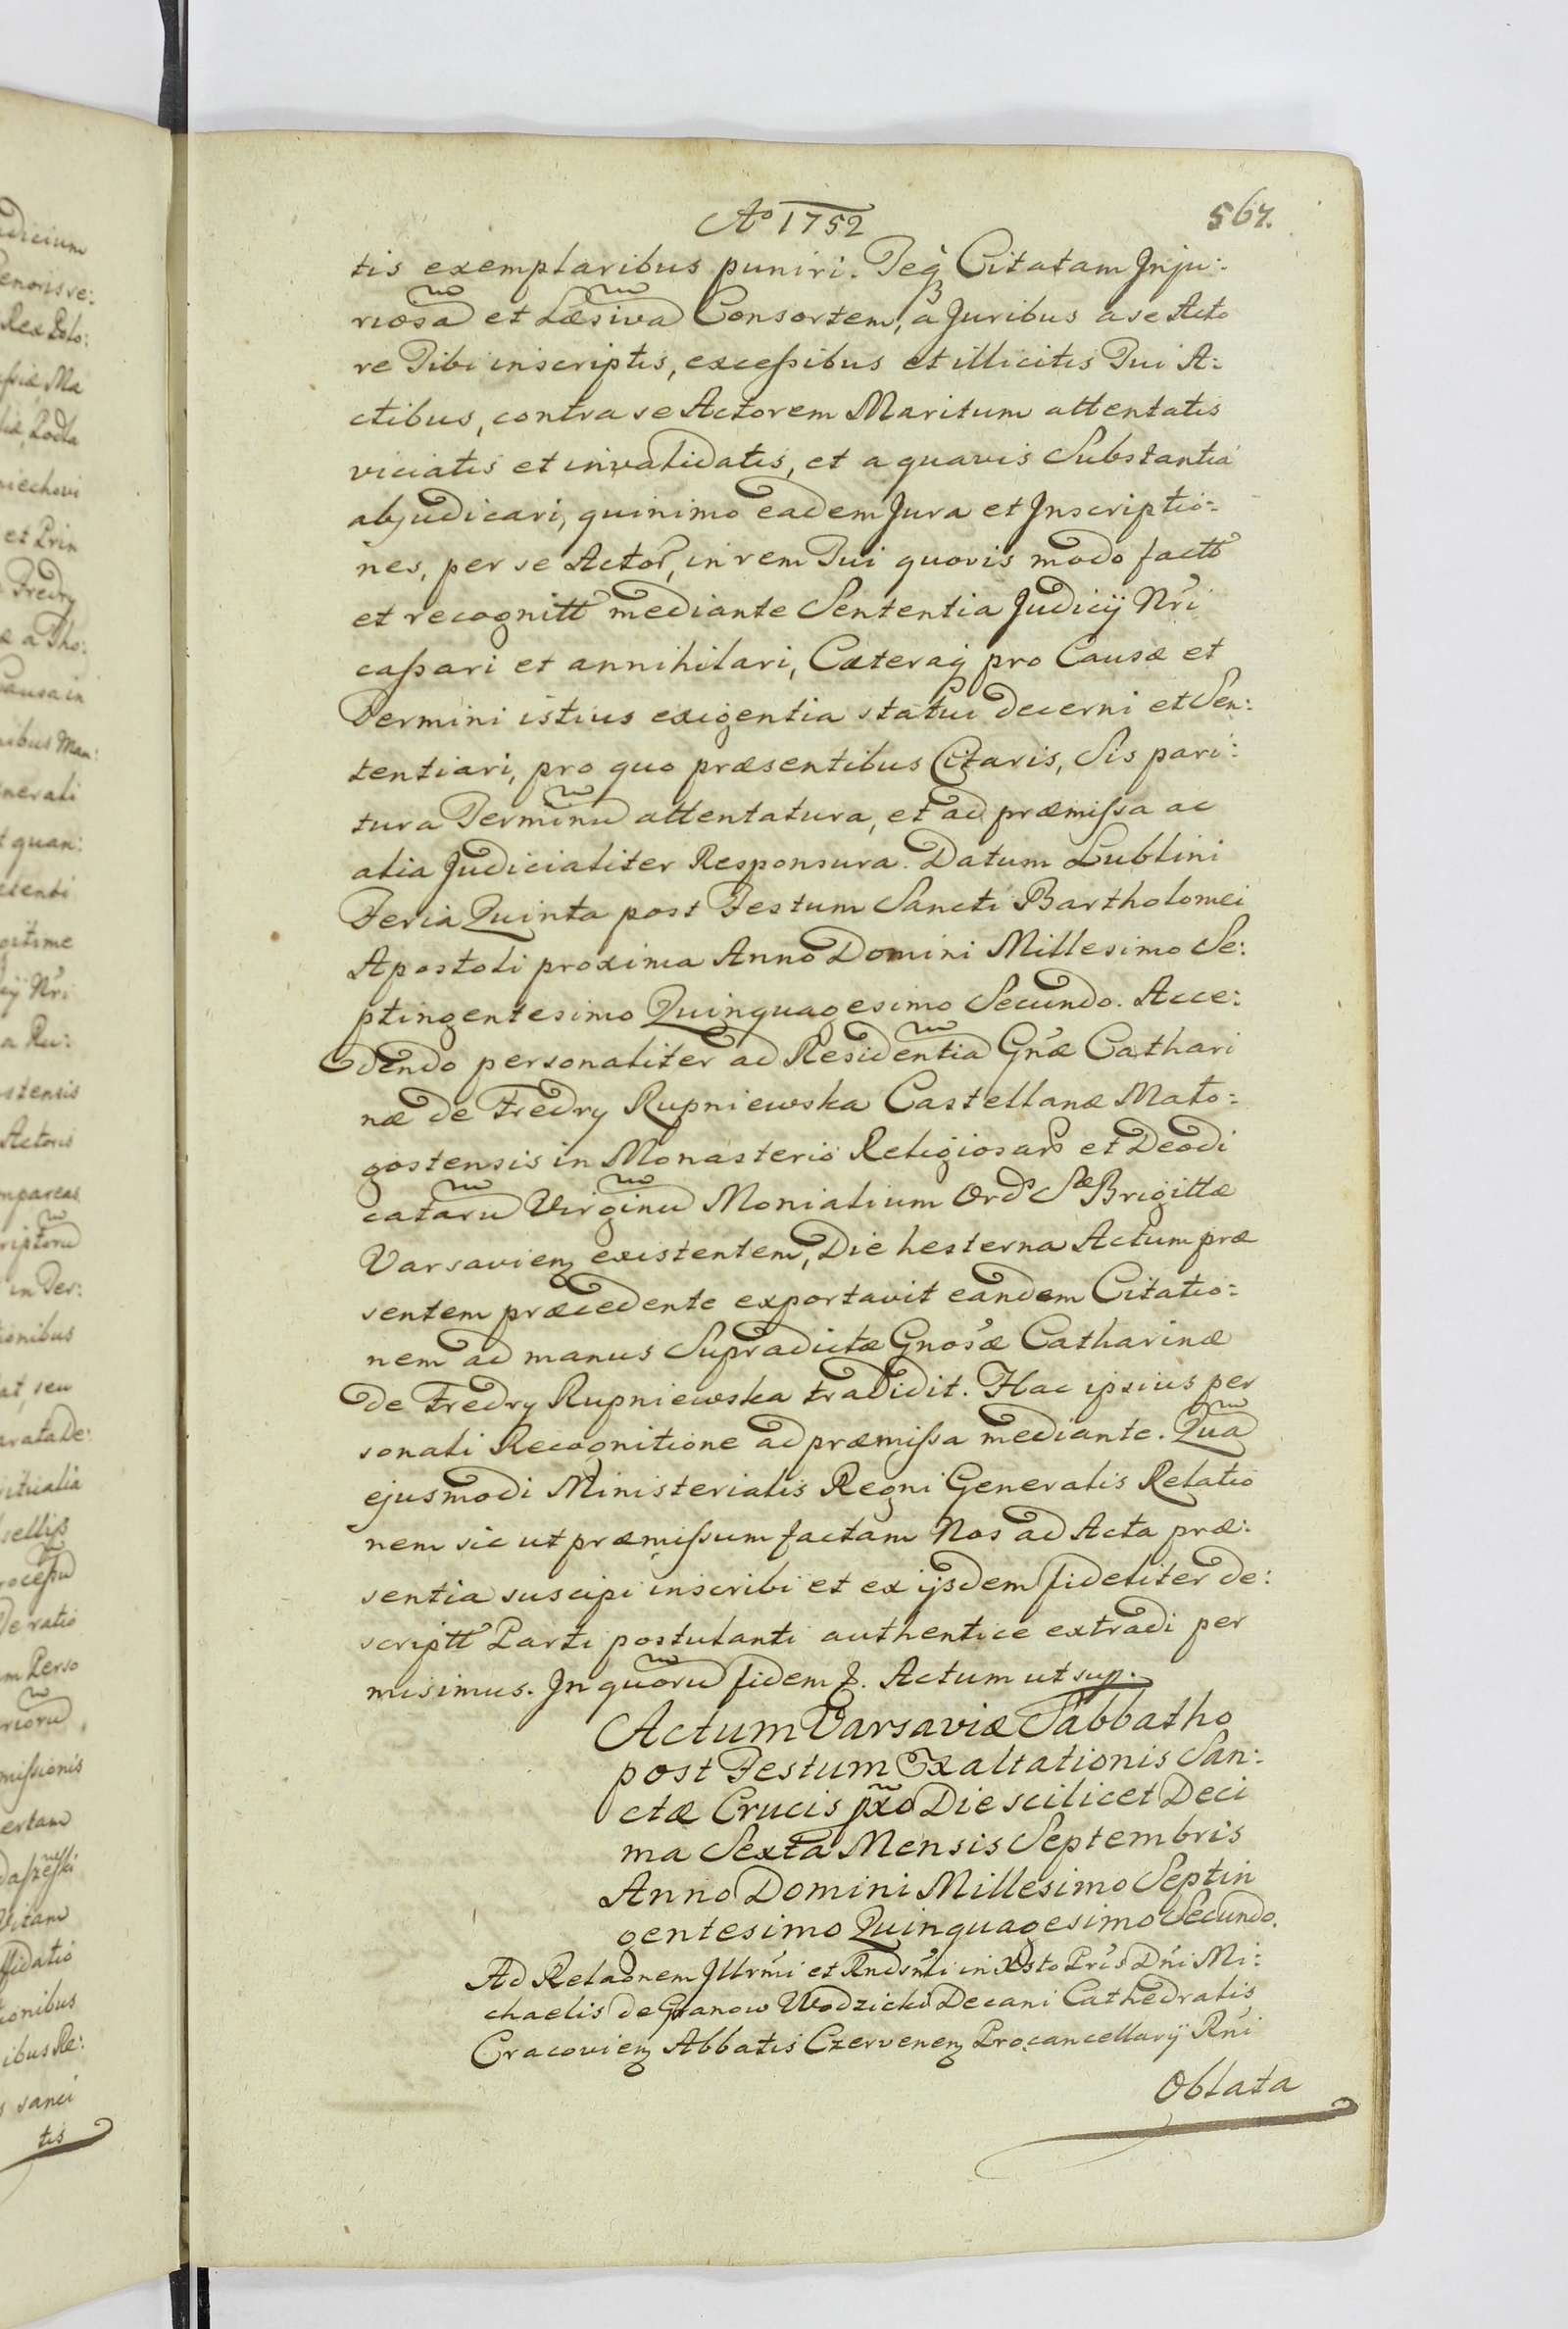 Aº 1752
567.
tis exemplaribus puniri. Teq Citatam Inju:
riosã et Læsivã Consortem, à Juribus a se Acto
re Tibi inscriptis, excessibus et illicitis Tui A:
ctibus, contra se Actorem Maritum attentatis
viciatis et invalidatis, et a quavis Substantia
abjudicari, quinimo eadem Jura et Inscriptio:
nes, per se Actor, in rem Tui quovis modo factt
et recognitt mediante Sententia Judicij Nri
cassari et annihilari, Cæteraq pro Causæ et
Termini istius exigentia statui decerni et Sen:
tentiari, pro quo præsentibus Citaris, Sis pari:
tura Terminũ attentatura, et ad præmissa ac
alia Judicialiter Responsura. Datum Lublini
Feria Quinta post Festum Sancti Bartholomei
Apostoli proxima Anno Domini Millesimo Se:
ptingentesimo Quinquagesimo Secundo. Acce:
dendo personaliter ad Residentiã Gnæ Cathari
næ de Fredry Rupniewska Castellanæ Mało:
gostensis in Monasterio Religiosar et Deodi
catarũ Virginũ Monialium Ord Sæ Brigittæ
Varsavien existentem, Die hesterna Actum præ
sentem præcedente exportavit eandem Citatio:
nem ad manus Supradictæ Gnosæ Catharinæ
de Fredry Rupniewska tradidit. Hac ipsius per
sonali Recognitione ad præmissa mediante. Quã
ejusmodi Ministerialis Regni Generalis Relatio
nem sic ut præmissum factam Nos ad Acta præ:
sentia suscipi inscribi et ex ijsdem fideliter de:
scriptt Parti postulanti authentice extradi per
misimus. In quorũ fidem &. Actum ut sup.
Actum Varsaviæ Sabbatho
post Festum Exaltationis San:
ctæ Crucis pxo Die scilicet Deci
ma Sexta Mensis Septembris
Anno Domini Millesimo Septin
gentesimo Quinquagesimo Secundo.
Ad Relaonem Illrmi et Rndsmi in Xsto Pris Dni Mi:
chaelis de Granow Wodzicki Decani Cathedralis
Cracovien Abbatis Czervenen Procancellarij Rni
Oblata